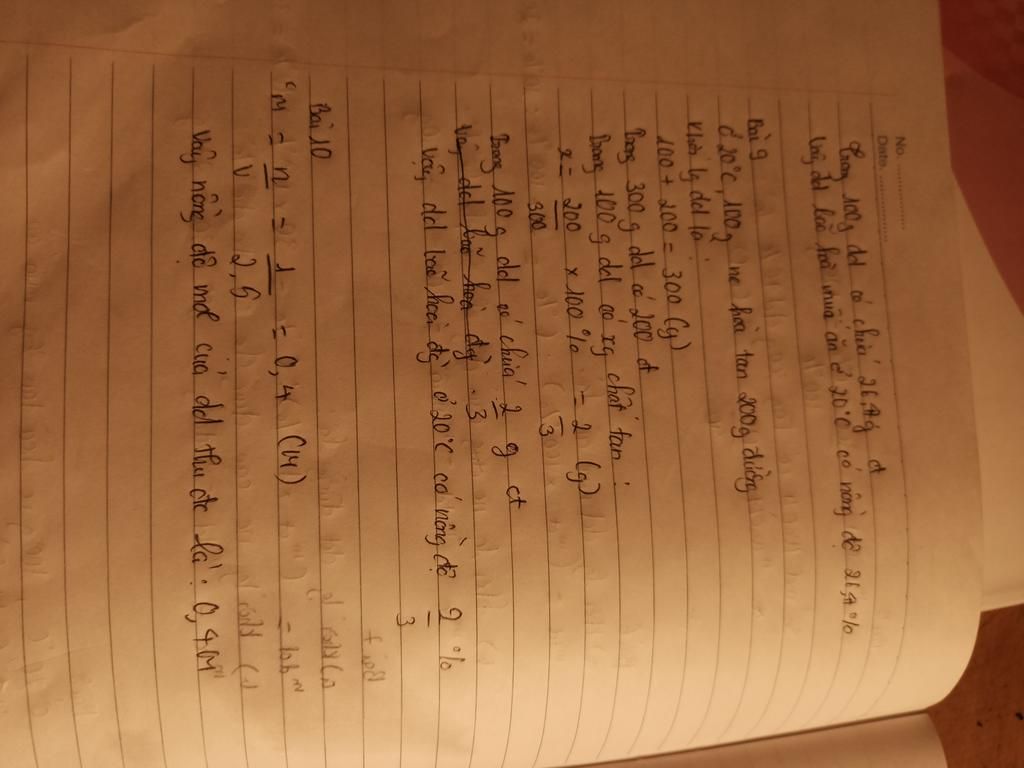 No. ..............
Date ..............
Trong 100g dd có chứa 26,4g ct
Vậy dd bão hoà muối ăn ở 20°C có nồng độ 26,4%
Bài 9
ở 20°C, 100g nc hoà tan 200g đường
Khối lg dd là:
100 + 200 = 300 (g)
Trong 300g dd có 200 ct
Trong 100g dd có xg chất tan:
x = 200/300 x 100% = 2/3 (g)
Trong 100g dd có chứa 2/3 g ct
Vậy dd bão hoà đg
Vậy dd bão hoà đg ở 20°C có nồng độ 2/3 %
Bài 10
CM = n/V = 1/2,5 = 0,4 (M)
Vậy nồng độ mol của dd thu đc là: 0,4M